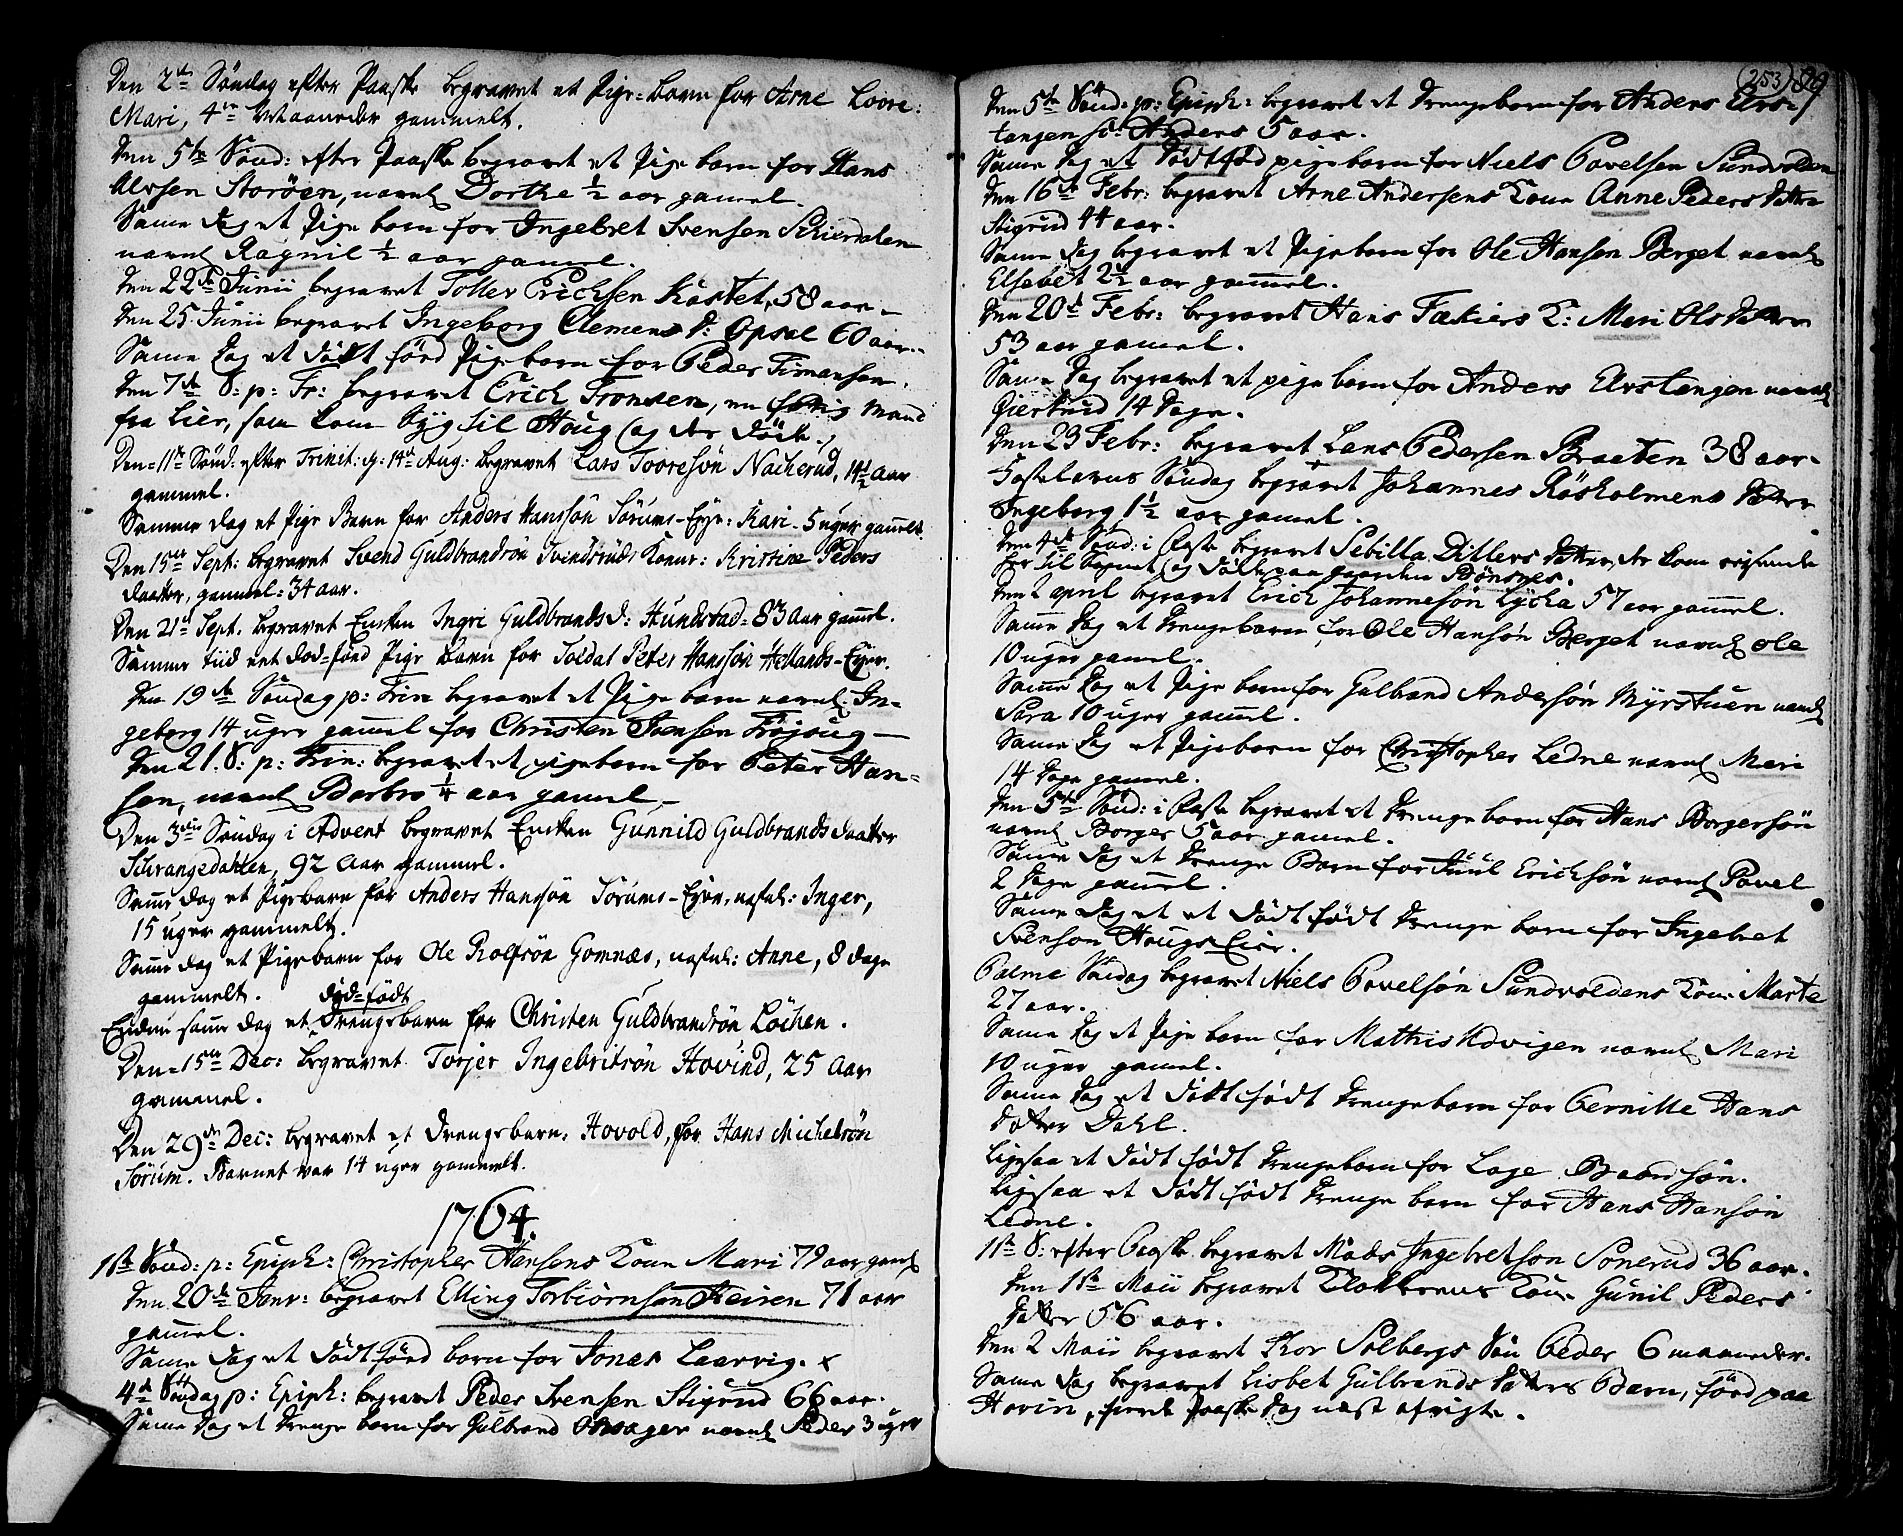 Den 2den Söndag efter Paaske begravet et Pige-barn for Arne Loore:
Mari, 4re Maaneder gammelt.
Den 5te Sönd: efter Paaske begravet et Pige barn for Hans
Alvsen Storöen, navnl Dorthe ½ aar gamel.
Same dag et Pige barn for Ingebret Svensen Schierdalen
navnl Ragnil ½ aar gamel.
Den 22de Junii begravet Tollev Erichsen Kastet, 58 aar
Den 25 Junii begravet Ingeborg Clemens D: Opsal 60 aar
Same Dag et dödt förd Pige barn for Peder Simensen.
Den 7de S: p: Tr: begravet Erich Tronsen, en mand
fra Lier, som kom syg til Houg og der döde.
Den 11te Sönd: efter Trinit: p: 14de Aug: begravet Lars Tooresön Nacherud, 14½ aar
gammel.
Samme dag et Pige Barn for Anders Hanssön Sörums-Eye: Kari 5 uger gamelt.
Den 15de Sept: begravet Svend Guldbrandsön Svindsruds Konne: Kristine Peders
daatter, gammel 34 aar.
Den 21de Sept. begravet Encken Ingri Guldbrands D: Hundstad 83 aar gamel.
Samme tiid eet död-förd Pige barn for Soldat Peter Hanssön Hellands-Eyer.
Den 19de Söndag p: Trin begravet et Pige barn navnl. In-
geborg 14 uger gamel for Christen Svensen Fröjoug
Den 21. S: p: Trin: begravet et pigebarn for Peter Han-
sen, navnl Barbro ¼ aar gamel
Den 3die Söndag i Advent begravet Encken Gunnild Guldbrands daatter
Schrangedahlen, 92 aar gammel.
Samme dag et Pigebarn for Anders Hanssön Sörums-Eyen, nafnl: Inger,
15 uger gammelt.
Samme dag et Pigebarn for Ole Rolfsön Gomnæs, nafnl: Anne, 8 dage
gammelt. död-födt
Endnu samme dag et Drengebarn for Christen Guldbrandsön Löchen.
Den 15de Dec: begravet Torjer Ingebritsön Hovind, 25 aar
gammel.
Den 29de Dec: begravet et Drengebarn, Hovold, for Hans Michelsön
Sörum. Barnet var 14 uger gammelt.
1764.
1ste Sönd: p: Epiph: Christopher Hansens Kone Mari 79 aar gamel
Den 20de Janv: begravet Elling Torbiörnsen Heiren 71 aar
gamel.
Same dag et dödt förd barn for Jonas Laarvig.
4de Söndag p: Epiph: begravet Peder Svensen Stigrud 66 aar
Same Dag et Drenge barn for Gulbrand Onsager navnl Peder 3 uger
(253) 89
Den 5te Sönd: p: Epiph: begravet et Drengebarn for Anders Elvs-
tangen Anders 5 aar.
Same Dag et Dödt föd pigebarn for Niels Povelsen Sundvolden
Den 16de Febr: begravet Arne Andersens Kone Anne Peders Datter
Stigrud 44 aar.
Same Dag begravet et Pigebarn for Ole Hansen Berget navnl
Elsebet 2½ aar gammel.
Den 20de Febr: begravet Hans Fækiers K: Mari Ols Datter
53 aar gamel.
Same Dag begravet et pige barn for Anders Elvstangen navnl
Giertrud 14 Dage.
Den 23 Febr: begravet Lars Pedersen Braaten 38 aar
Fastelavns Söndag begravet Johannes Rösholmens Datter
Ingeborg 1½ aar gamel.
Den 4de Sönd: i Faste begravet Sebilla Ditlevs Datter, der kom reisende
her til Sognet og döde paa gaarden Bönsnes.
Den 2 april begravet Erich Johannesön Lycka 57 aar gammel.
Same Dag et Drengebarn for Ole Hansön Berget navnl Ole
10 uger gamel.
Same Dag et Pige barn for Gulbrand Andersön Myrstuen navnl
Sara 10 uger gammel.
Same Dag et Pigebarn for Christopher Ledne navnl Mari
14 Dage gamel.
Den 5te Sönd: i Faste begravet et Drenge barn for Hans Borgersön
navnl Borger 5 aar gamel.
Same Dag et Drenge Barn for Juul Ericksön navnl Povel
2 Dage gammel.
Same Dag et et dödt födt Drenge barn for Ingebret
Svenson Hougs Eier.
Palme Söndag begravet Niels Povelsön Sundvoldens Kone Marte
27 aar.
Same Dag et Pige barn for Mathis Udvigen navnl Mari
10 uger gamel.
Same Dag et dödt födt Drengebarn for Pernille Hans
datter Dahl.
Ligesaa et dödt födt Drengebarn for Lage Baardsön.
Ligesaa et dödt födt Drenge barn for Hans Hansön
Ledne.
1ste S: efter Paaske begravet Mads Ingebretson Sonerud 36 aar.
Den 1ste Maii begravet Klokkerens Kone Gunil Peders
Datter 56 aar.
Den 2 Maii begravet Thor Solbergs Sön Peder 6 maaneder.
Same Dag begravet Lisbet Gulbrands Datters Barn, förd paa
Hovin, förste Paaske Dag næst afvigte.